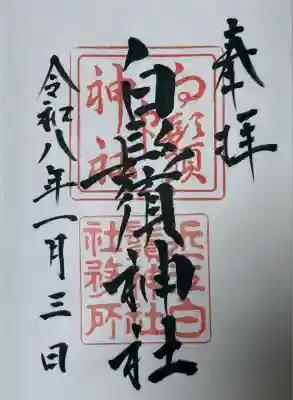 奉拝
白鬚神社
白鬚
神社
白
鬚神社
社務所
令和八年一月三日